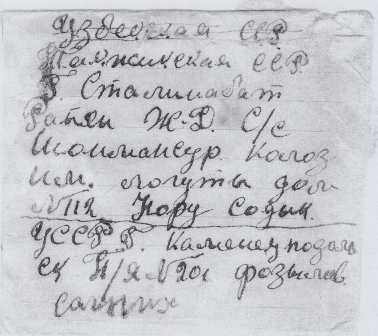 Узбекская ССР
Таджикская ССР
Г. Сталинабат
Район Ж-Д. С/с
Шаимансур. Колоз
им. дом
№ 112 Нору Содык.
УССР Г. Каменец подоль
ск П/Я № 201 фозылов